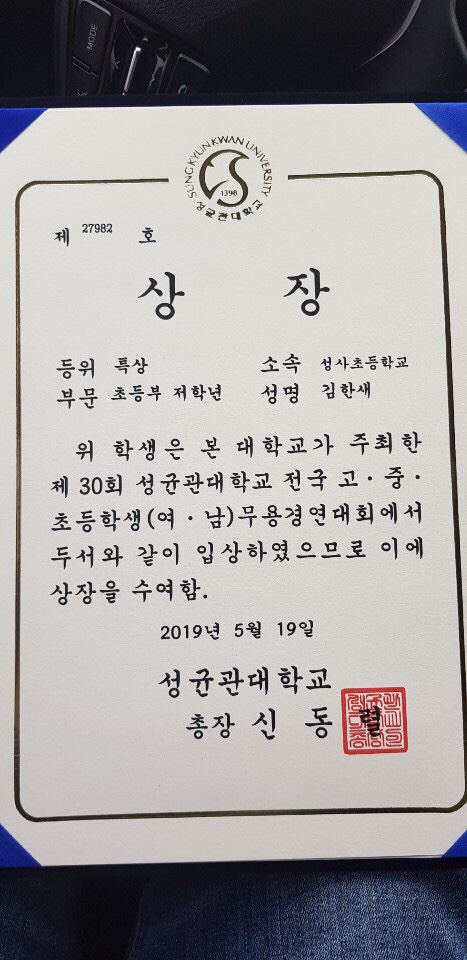 MODE
SUNGKYUNKWAN UNIVERSITY
1398
성균관대학교
제 27982 호
상 장
등위 특상 소속 성사초등학교
부문 초등부 저학년 성명 김한새
위 학생은 본 대학교가 주최한
제 30회 성균관대학교 전국 고·중·
초등학생(여·남)무용경연대회에서
두서와 같이 입상하였으므로 이에
상장을 수여함.
2019년 5월 19일
성균관대학교
총장 신 동 렬